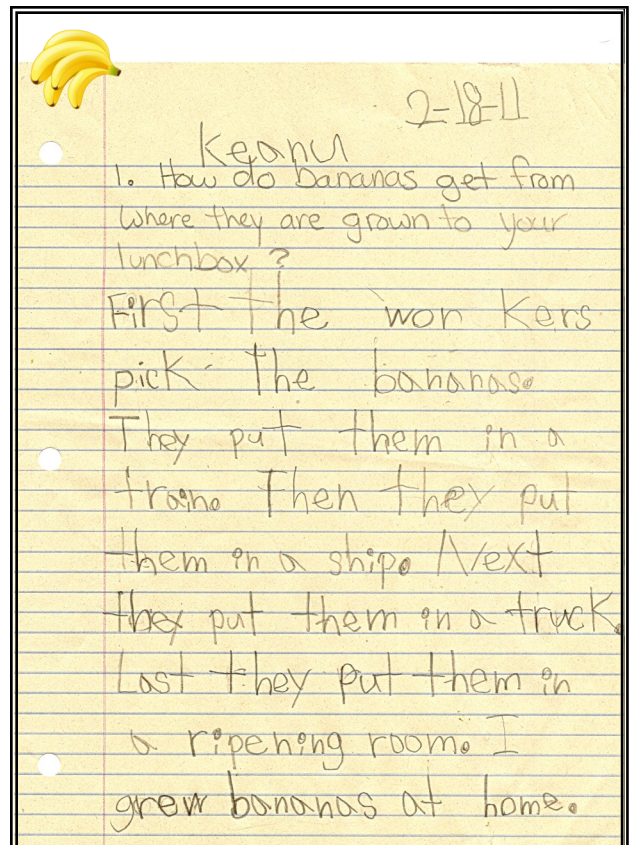 2-18-11
Keanu
1. How do bananas get from
where they are grown to your
lunchbox?
First the wor kers
pick the bananas.
They put them in a
train. Then they put
them in a ship. Next
they put them in a truck.
Last they put them in
a ripening room. I
grew bananas at home.